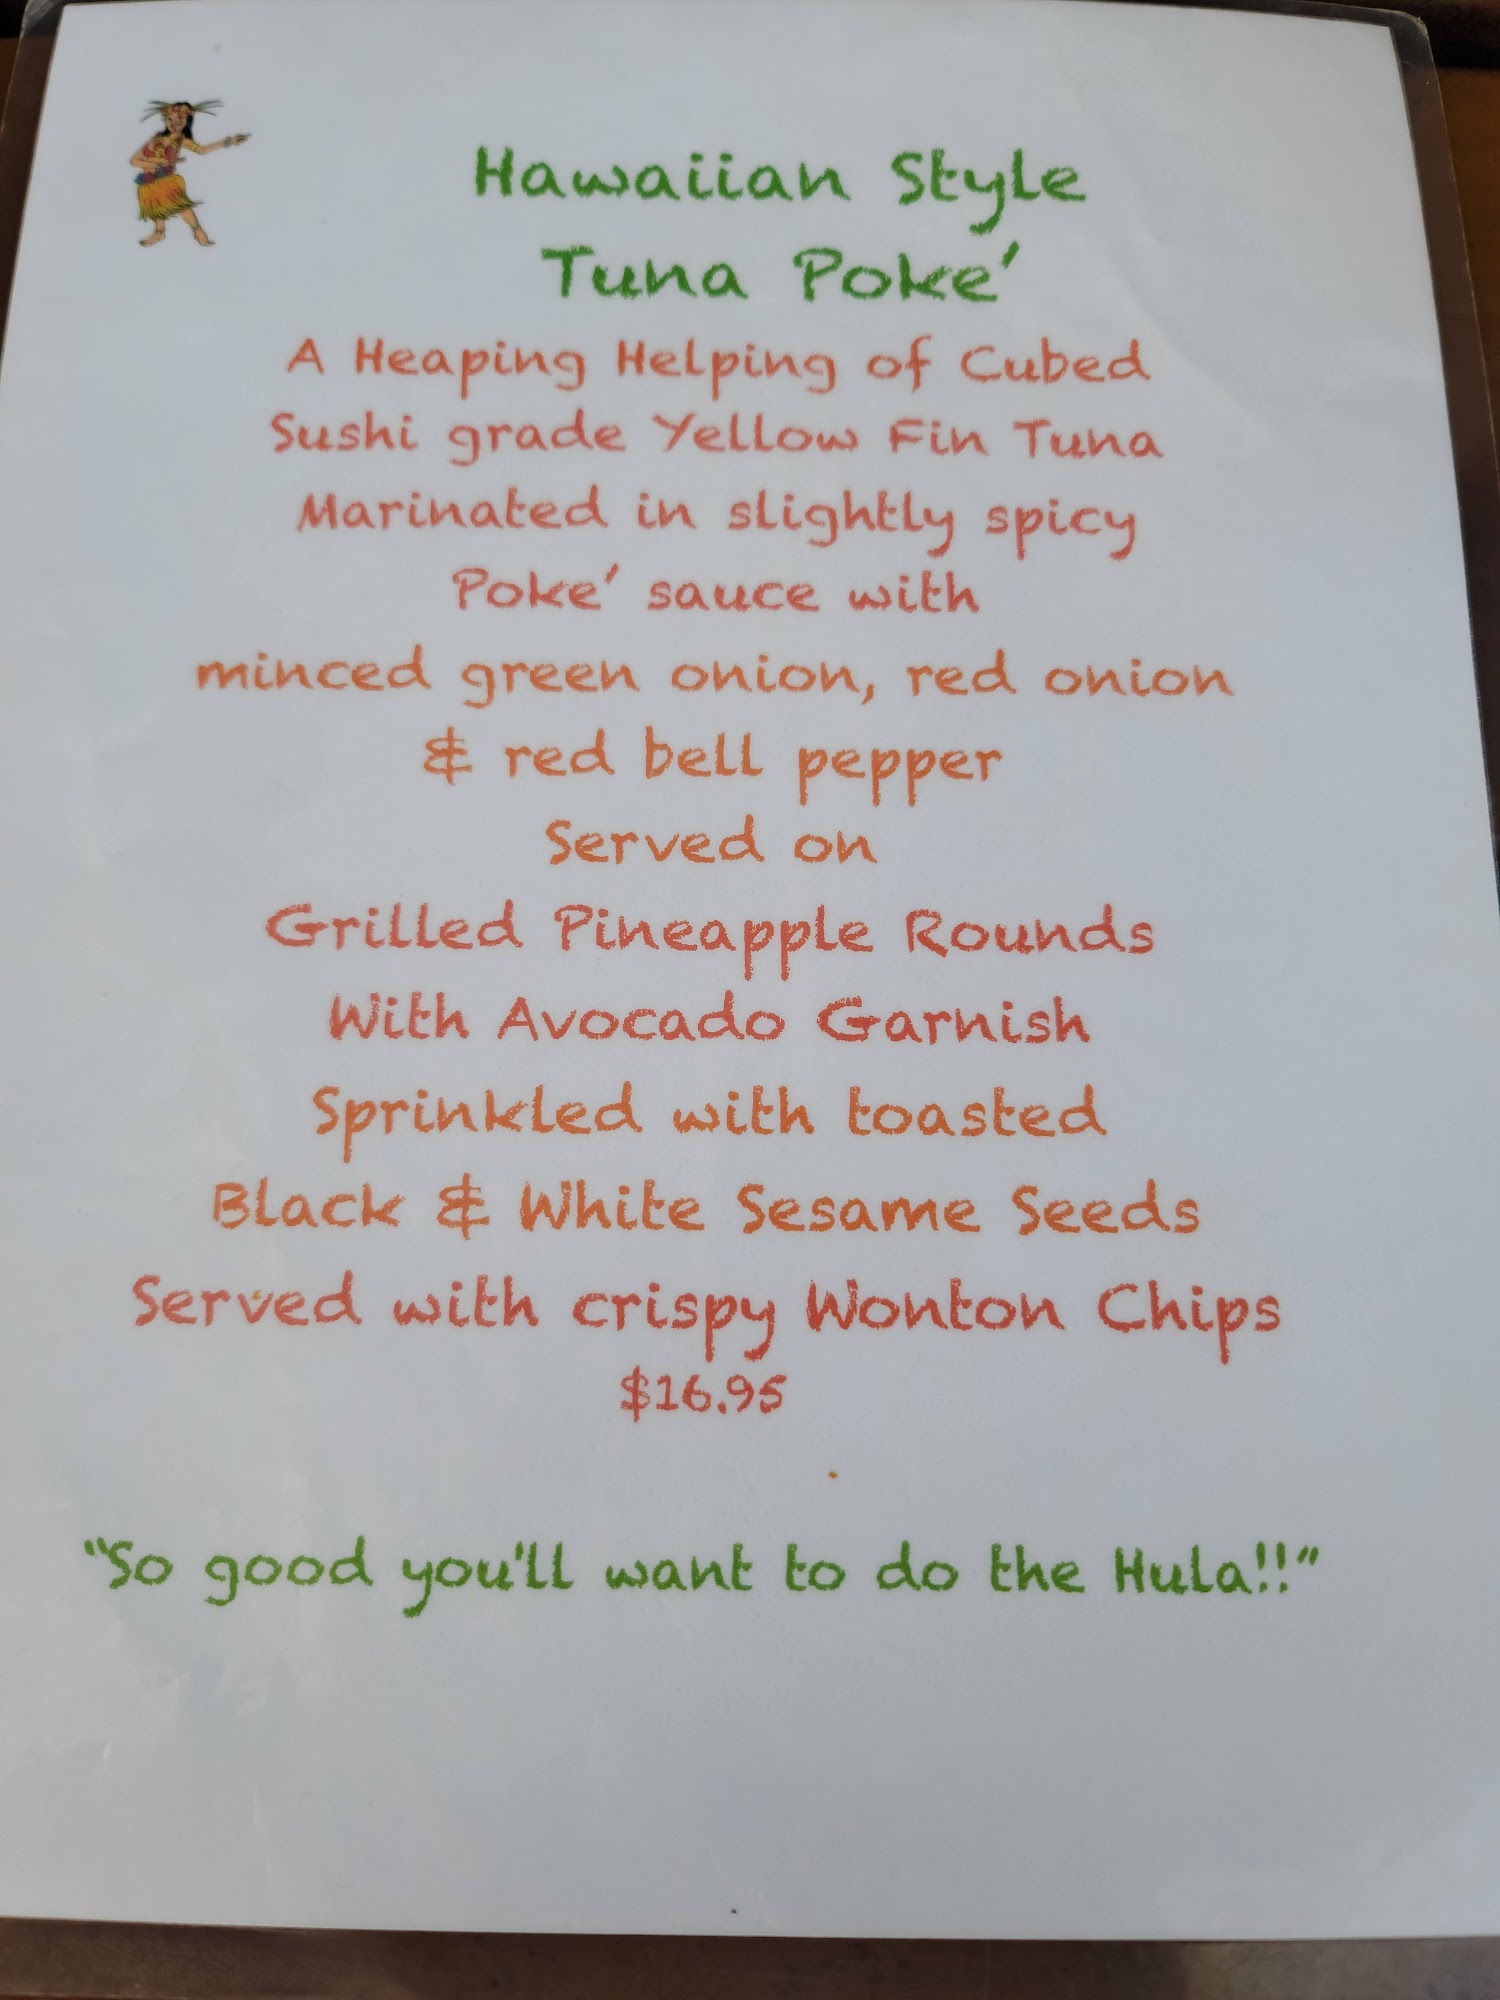 Hawaiian Style
Tuna Poke'
A Heaping Helping of Cubed
Sushi grade Yellow Fin Tuna
Marinated in slightly spicy
Poke' sauce with
minced green onion, red onion
& red bell pepper
Served on
Grilled Pineapple Rounds
With Avocado Garnish
Sprinkled with toasted
Black & White Sesame Seeds
Served with crispy Wonton Chips
$16.95
"So good you'll want to do the Hula!!"